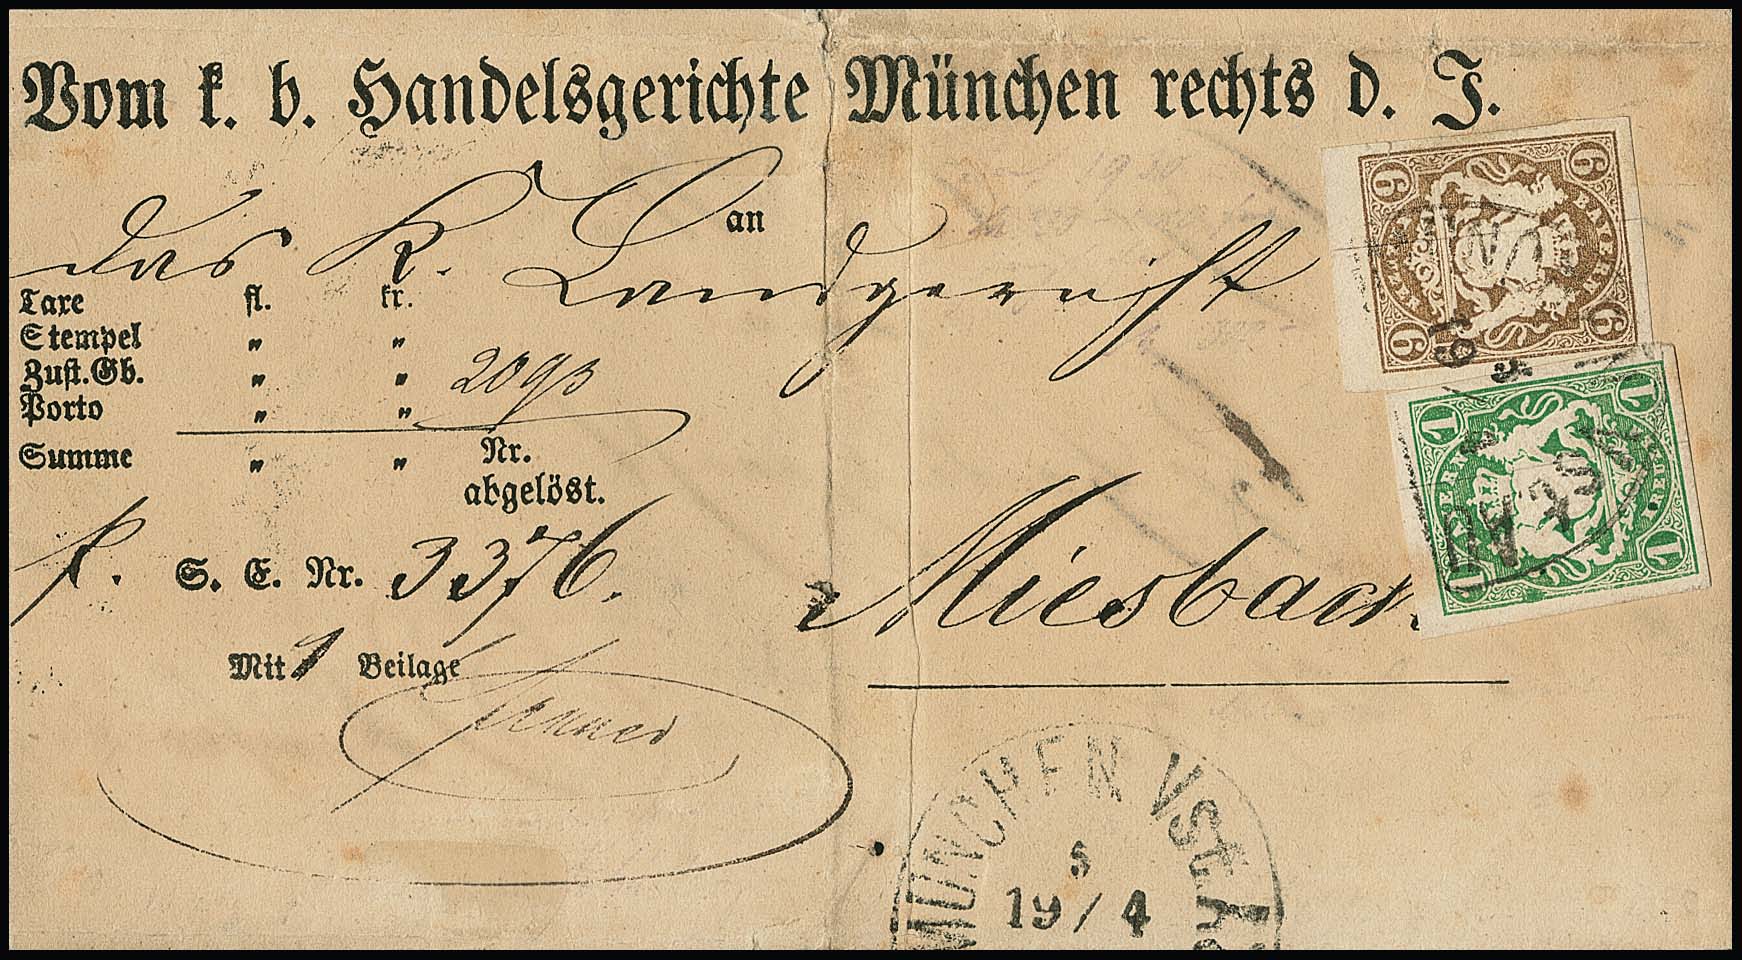 Vom k. b. Handelsgerichte München rechts d. I.
an
das K. Landgericht
Taxe fl. kr.
Stempel " "
Zust.Gb. " "
Porto " "
Summe " "
Nr.
abgelöst.
S. E. Nr. 3376.
Miesbach.
Mit 1 Beilage
6 6 6 6
BAYERN
1 1 1 1
BAYERN
MÜNCHEN
19/4